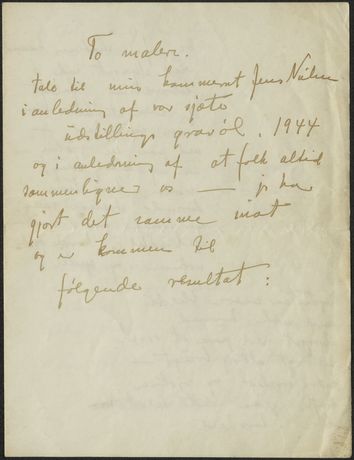 To malere.
tale til min kammerat Jens Nielsen
i anledning af vor sjette
udstillings gravøl. 1944
og i anledning af at folk altid
sammenligner os — jeg har
gjort det samme
og er kommen til
følgende resultat :